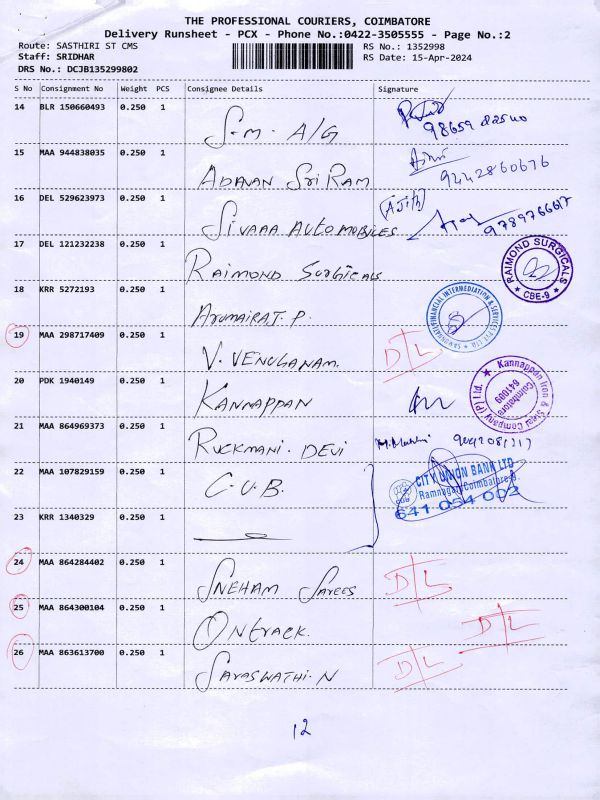 THE PROFESSIONAL COURIERS, COIMBATORE
Delivery Runsheet - PCX - Phone No.:0422-3505555 - Page No.:2
Route: SASTHIRI ST CMS RS No.: 1352998
Staff: SRIDHAR RS Date: 15-Apr-2024
DRS No.: DCJB135299802
S No Consignment No Weight PCS Consignee Details Signature
14 BLR 150660493 0.250 1 S.M. A/G
15 MAA 944838035 0.250 1 ADAVAN SRI RAM 9442860676
16 DEL 529623973 0.250 1 SIVAAA AUTOMOBILES
17 DEL 121232238 0.250 1 RAIMOND SURGICALS RAIMOND SURGICALS * CBE-9 *
18 KRR 5272193 0.250 1 ARUMAIRAJ. P.
19 MAA 298717409 0.250 1 V. VENUGANAM. D L
20 PDK 1940149 0.250 1 KANNAPPAN Kannappan Iron & Steel Company (P) Ltd. Coimbatore 641009
21 MAA 864969373 0.250 1 RUCKMANI. DEVI
22 MAA 107829159 0.250 1 C.U.B. CITY UNION BANK LTD
Ramnagar Coimbatore-9.
641 054 002
23 KRR 1340329 0.250 1
24 MAA 864284402 0.250 1 SNEHAM SAREES D L
25 MAA 864300104 0.250 1 ONTRACK. D L
26 MAA 863613700 0.250 1 SARASWATHI. N D L
12